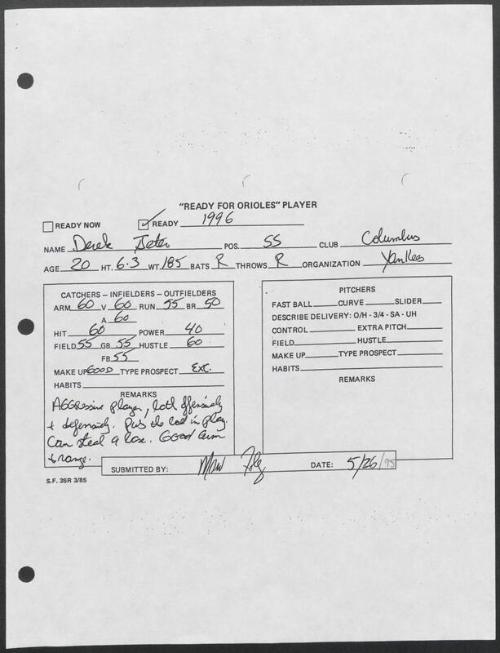 "READY FOR ORIOLES" PLAYER
READY NOW ✓ READY 1996
NAME Derek Jeter POS. SS CLUB Columbus
AGE 20 HT. 6-3 WT. 185 BATS R THROWS R ORGANIZATION Yankees
CATCHERS – INFIELDERS – OUTFIELDERS
ARM 60 V 60 RUN 55 BR 50
A 60
HIT 60 POWER 40
FIELD 55 GB 55 HUSTLE 60
FB 55
MAKE UP GOOD TYPE PROSPECT EXC.
HABITS
REMARKS
AGGressive player, both offensively
+ defensively. Puts the ball in play.
Can steal a base. Good arm
+ range.
PITCHERS
FAST BALL CURVE SLIDER
DESCRIBE DELIVERY: O/H - 3/4 - SA - UH
CONTROL EXTRA PITCH
FIELD HUSTLE
MAKE UP TYPE PROSPECT
HABITS
REMARKS
SUBMITTED BY: DATE: 5/26/95
S.F. 36R 3/85